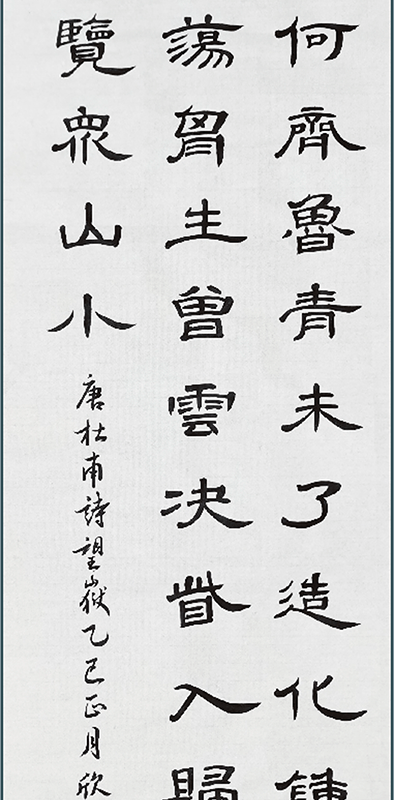 何齊魯青未了造化鍾
蕩胷生曾雲決眥入歸
覽眾山小
唐杜甫詩望嶽乙巳正月欣